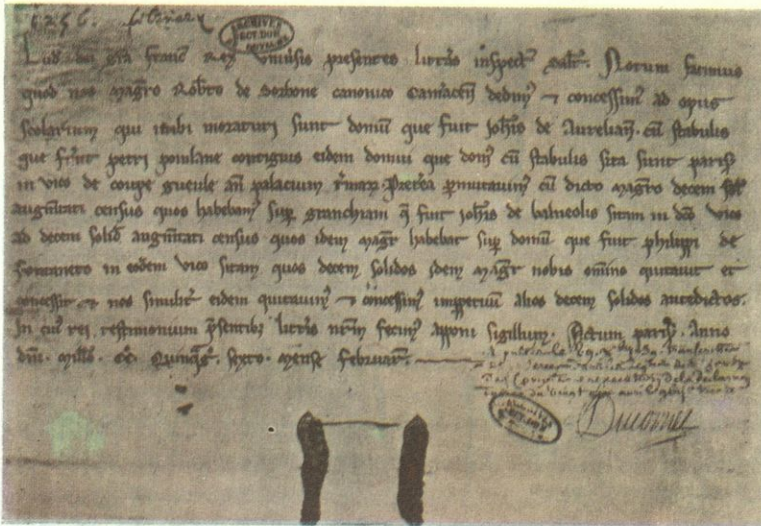 1256. februar
ARCHIVES SECT. DOM
Lud. dei gra Franc Rex. Universis presentes litteras inspectur Salt. Notum facimus
quod nos magro Robto de Sorbona canonico Camacen dedim et concessim ad opus
scolarium qui inibi moraturi sunt domu que fuit Johis de Aurelian. cu stabulis
que fuerunt petri poinlane contiguis eidem domui que dom cu stabulis sita sunt paris
in vico de coupe gueule an palacium t'marz. Preterea pmutavim cu dicto magro decem sol
augmtati census quos habebam sup granchiam q fuit Johis de balneolis sitam in dco vico
ad decem solid augmtati census quos idem magr habebat sup domu que fuit philippi de
Fontaneto in eodem vico sitam quos decem solidos idem magr nobis omino quitavit et
concessit et nos similit eidem quitavim et concessim imppetuu alios decem solidos antedictos.
In cui rei testimonium psentib litteris nrm fecim apponi sigillum. Actum paris. Anno
dni. millo. CC Quinqg. sexto. mense Februar.